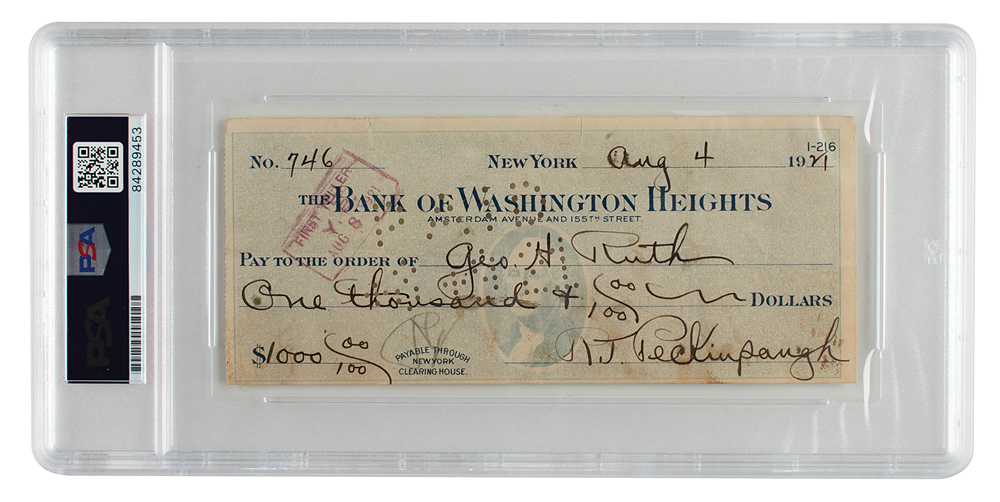 PSA
84289453
PSA
1-216
No. 746 NEW YORK Aug 4 1921
THE BANK OF WASHINGTON HEIGHTS
AMSTERDAM AVENUE AND 155TH STREET.
FIRST TELLER
AUG 8
PAY TO THE ORDER OF Geo. H. Ruth
One thousand & 00/100 DOLLARS
$1000 00/100
PAYABLE THROUGH
NEW YORK
CLEARING HOUSE.
R.T. Peckinpaugh